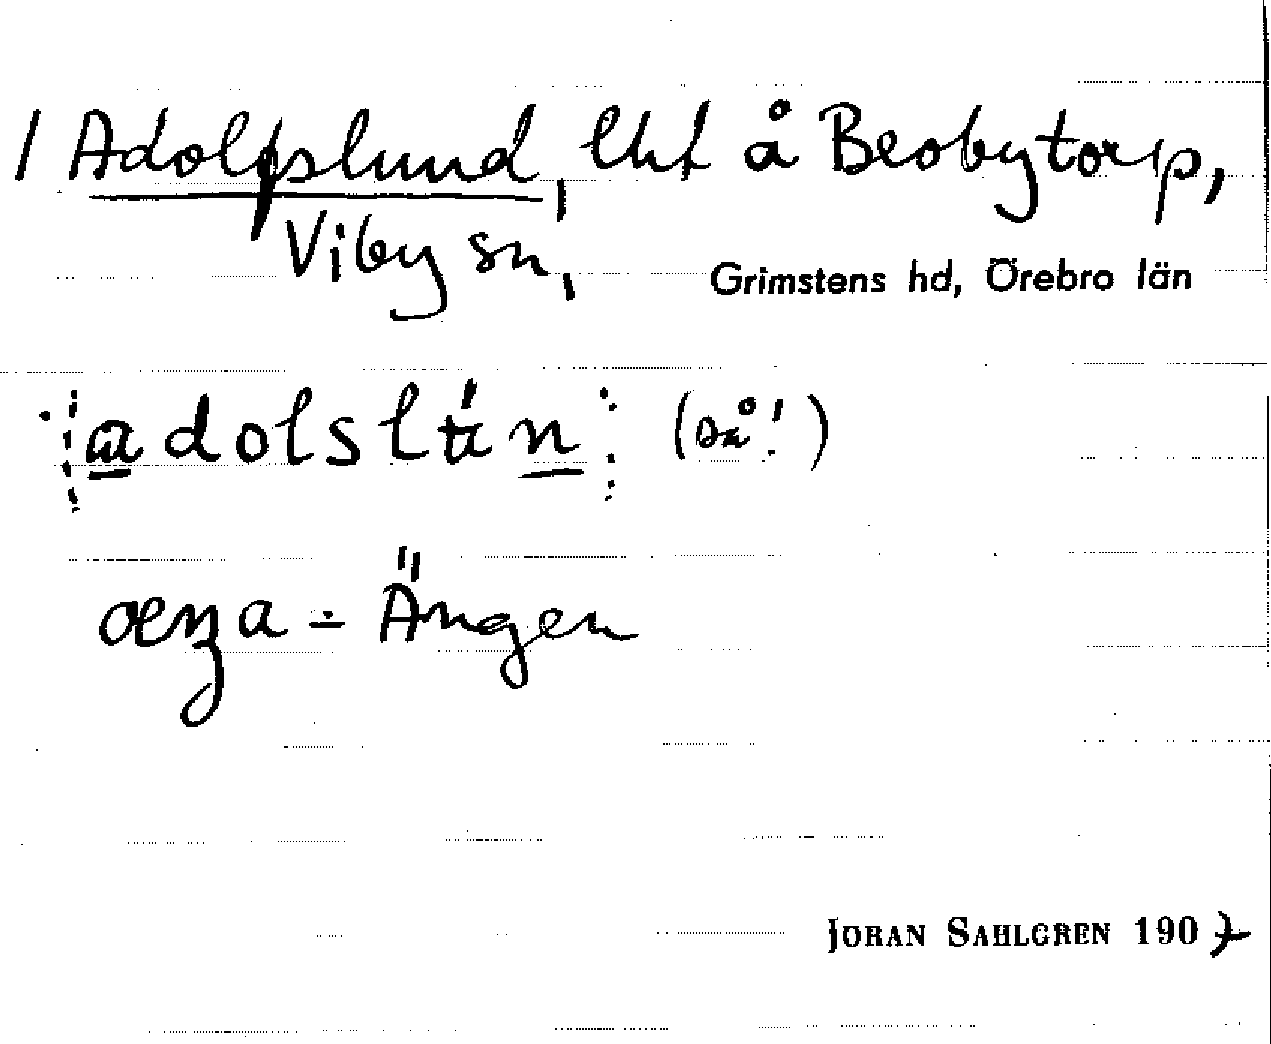 / Adolfslund, lht å Brobytorp,
Viby sn,
Grimstens hd, Örebro län
adolslun
= Ängen
JÖRAN SAHLGREN 1907